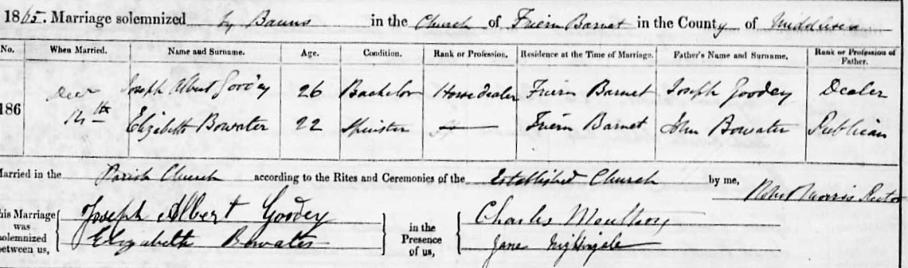 1865. Marriage solemnized by Banns in the Church of Friern Barnet in the County of Middlesex
No. When Married. Name and Surname. Age. Condition. Rank or Profession. Residence at the Time of Marriage. Father's Name and Surname. Rank or Profession of Father.
186 Decr Joseph Albert Goodey 26 Bachelor Horse dealer Friern Barnet Joseph Goodey Dealer
th Elizabeth Bowater 22 Spinster Friern Barnet John Bowater Publican
arried in the Parish Church according to the Rites and Ceremonies of the Established Church by me, Morris Rector
his Marriage was solemnized between us, Joseph Albert Goodey in the Presence of us, Charles
Elizabeth Bowater Jane Nightingale